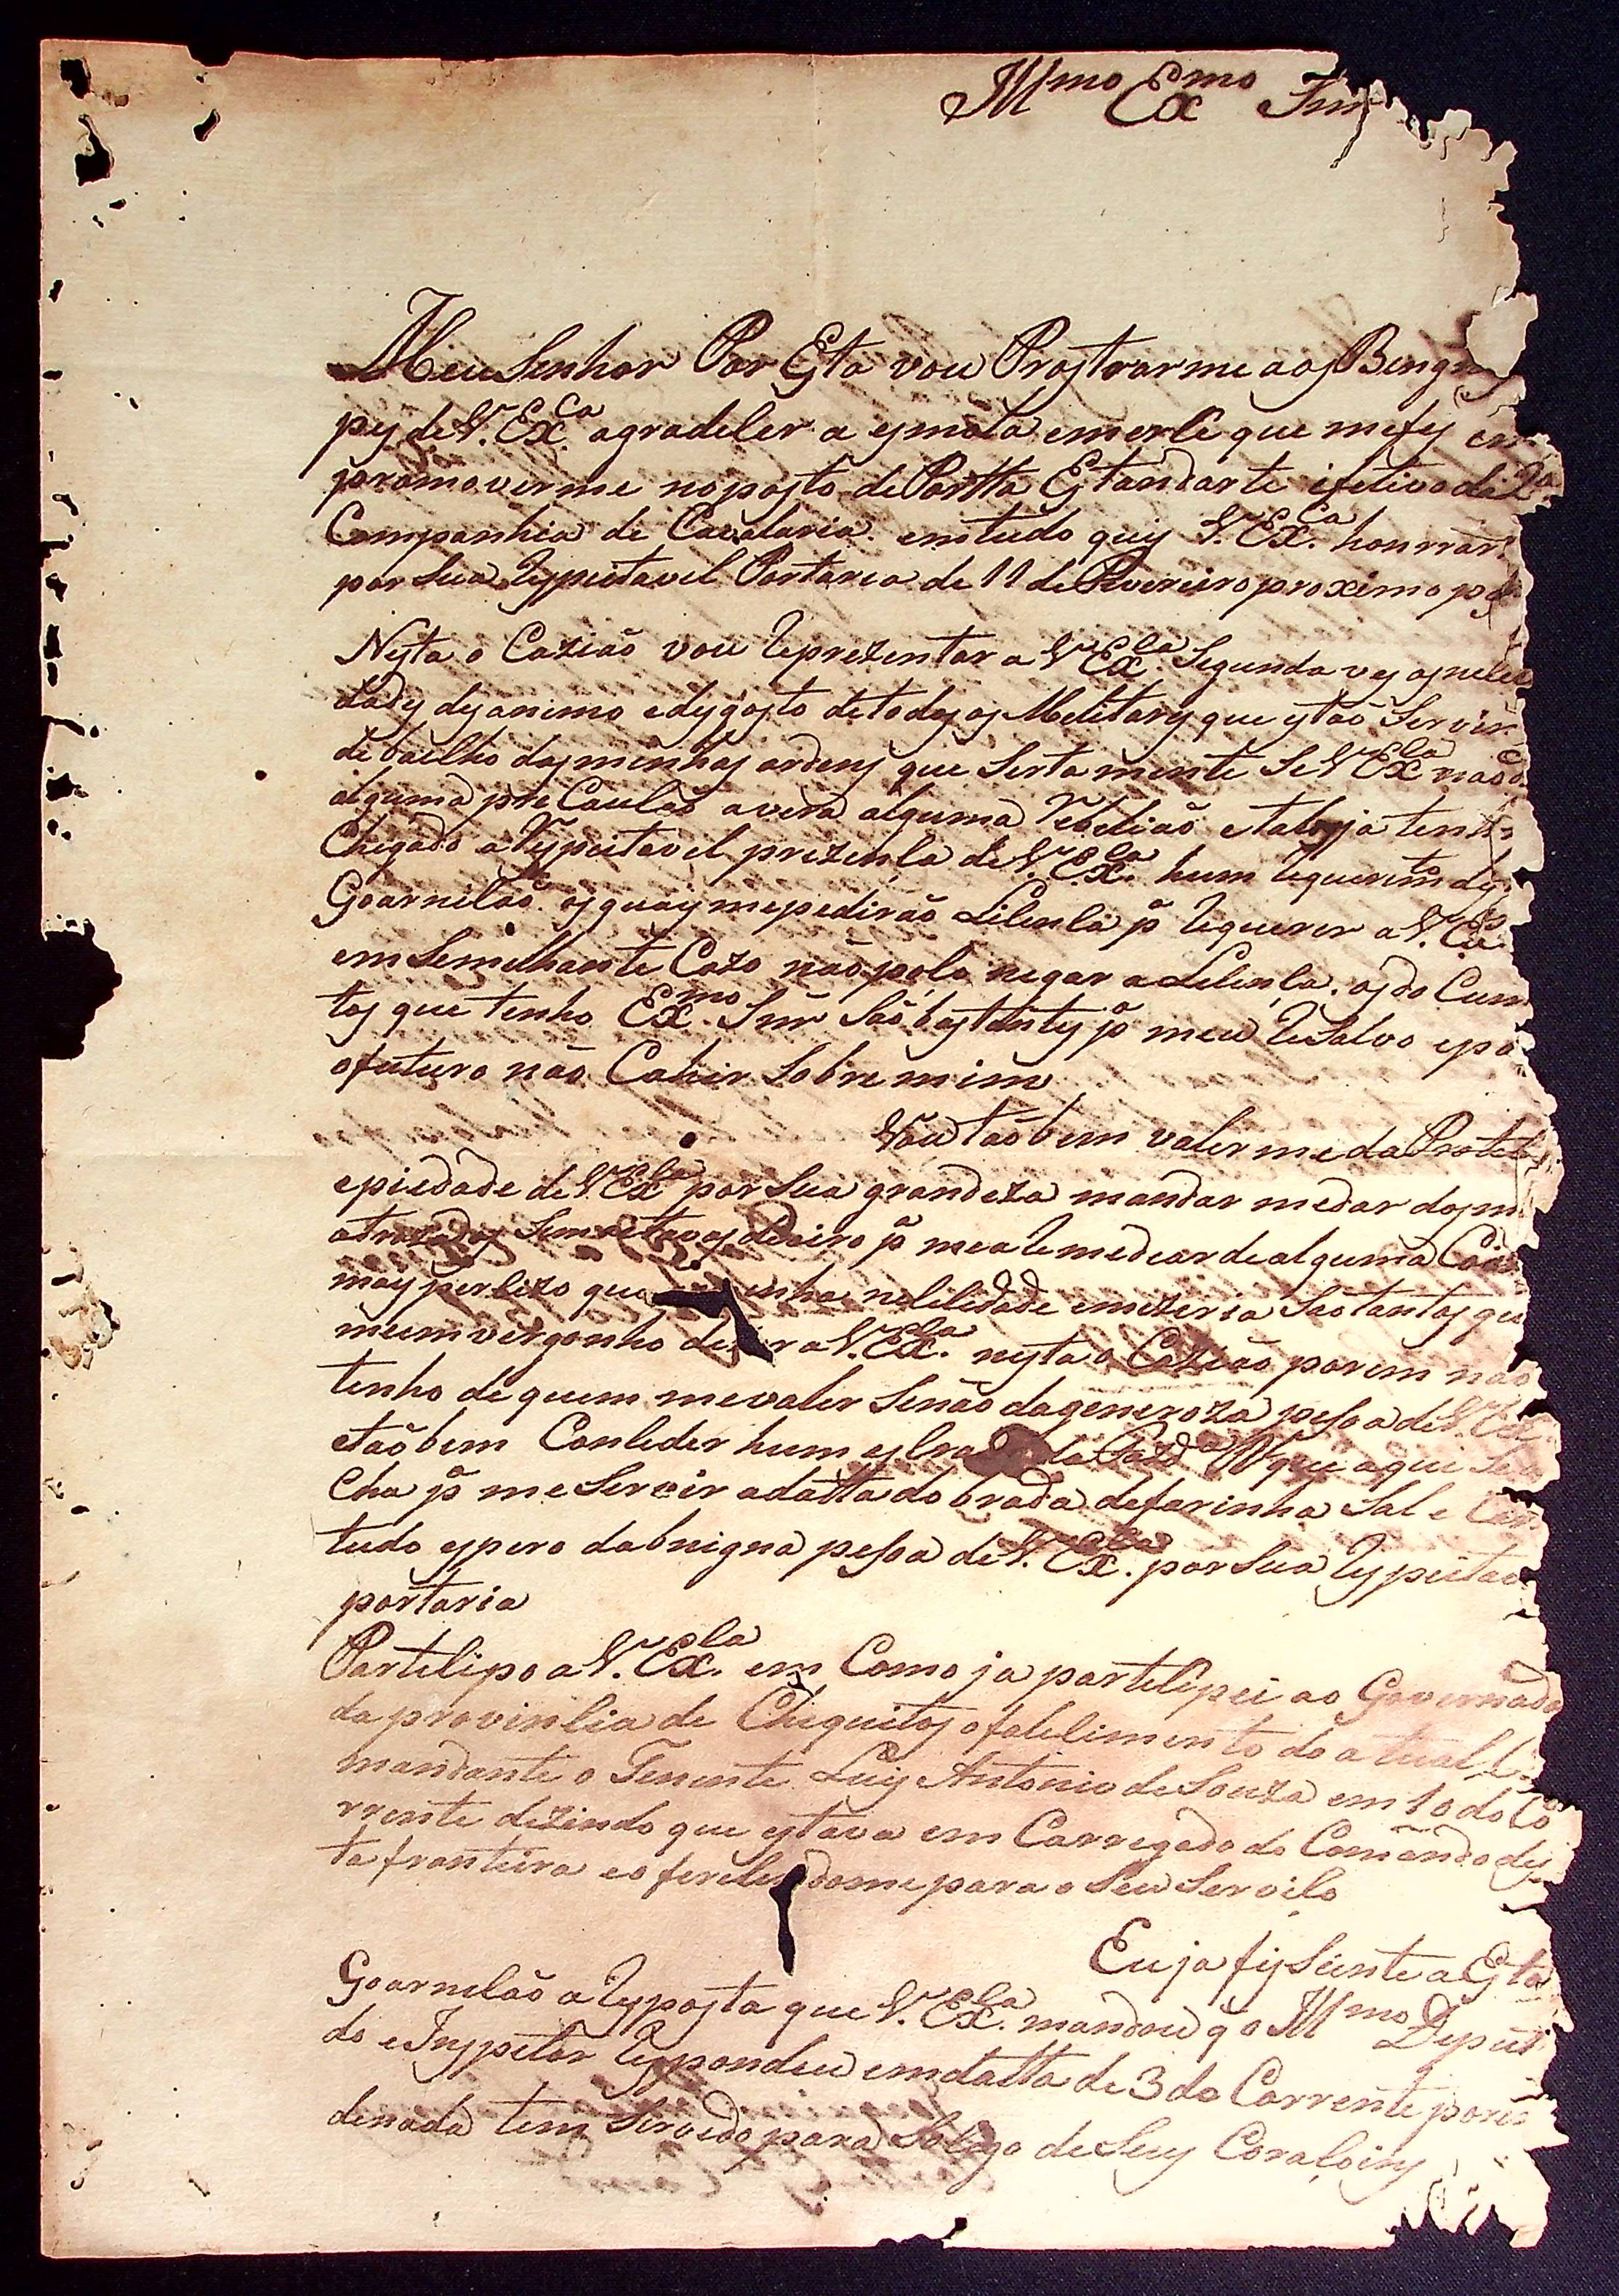 Illmo Exmo Snr
Meu Senhor Por Esta vou Prostrarme aos Bengn
pes de V. Exca agradeser a esmola emerse que mefes em
promoverme noposto de Portta Estandarte efetivo da 2a
Companhia de Cavalaria. emtudo quis V. Exca. honrrar
por sua Respeitavel Portaria de 11 de Fevereiro proximo p
Nesta o Cazião vou Reprezentar a V Exca. Segunda ves as
dades dezanimo edesgosto detodos os Melitares que estão Servin
de baixo dasminhas ordens que Serta mente Se V Exca não
alguma pre Caução avera alguma Rebelião etalves ja tenha
Chegado a Respeitavel prezença de V. Exca. hum Requerimto des
Goarnisão. os quais mepedirão Lisensa pa Requerer a V. Ex
em Semelhante Cazo não poso negar a Lisença. os do Cumen
tos que tenho Exmo. Snr São bastantes pa meu Resalvo epa
ofuturo não Cahir Sobre mim
Vou tãobem valerme da Protes
epiedade de V. Exca por sua grandeza mandar medar dosm
atrazados Sem oitavas de oiro pa me a Remediar de alguma Coiz
mais persizo que inha nesesidade emizeria São tantas que
meemvergonho de r a V. Exca. nesta o Cazião porem não
tenho de quem mevaler Senão dageneroza pesoa de V. Exca
etãobem Conseder hum escra da Fazda N que aqui Se a
cha pa me Servir adatta do brada defarinha Sal e
tudo espero dabnigna pesoa de V. Exca. por sua Respeitav
portaria
Partesipo a V. Exca. em Como ja partesipei ao Governado
da provinsia de Chiquitos o falesimento do atual C
mandante o Tenente Luis Antonio de Souza em 10 do Co
rrente dezindo que estava em Carregado do Comando des
ta fronteira eo feresendome para o Seu Serviso
Eu ja fis Siente a Esta
Goarnisão a Resposta que V. Exca. mandou q o Illmo Deputa
do e Inspetor Respondeu emdatta de 3 do Corrente porem
denada tem Servido para Sosego de Seus Corasoins